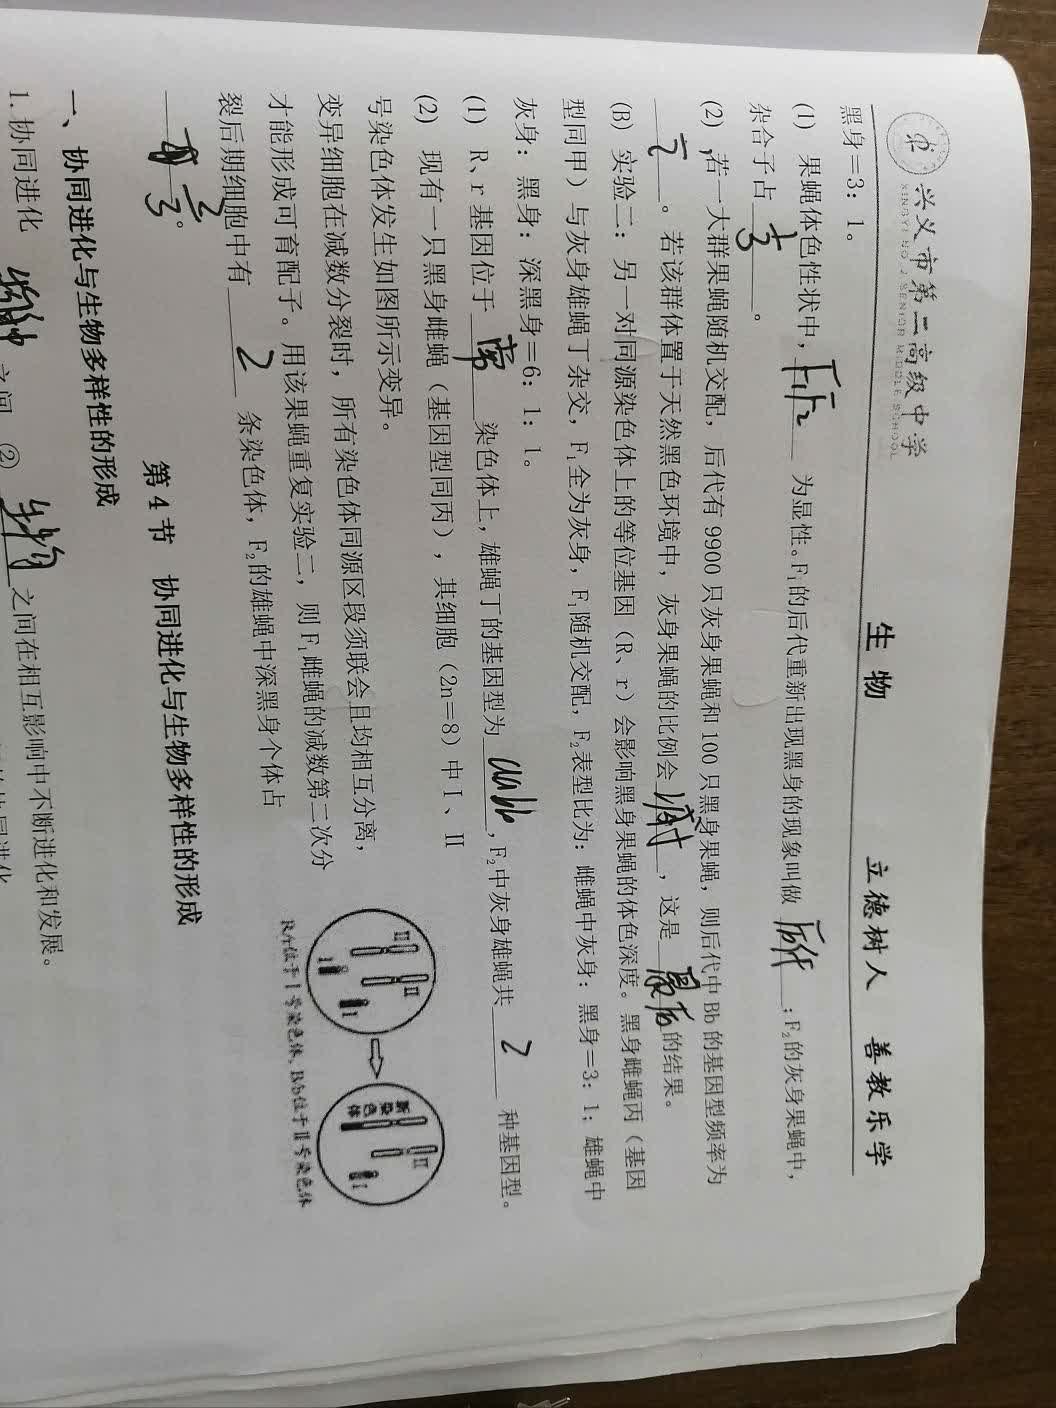 兴义市第二高级中学
XINGYI NO.2 SENIOR MIDDLE SCHOOL
生 物
立德树人 善教乐学
黑身=3：1。
(1) 果蝇体色性状中，F1F2 为显性。F₁的后代重新出现黑身的现象叫做 后代；F₂的灰身果蝇中，
杂合子占 。
(2) 若一大群果蝇随机交配，后代有 9900 只灰身果蝇和 100 只黑身果蝇，则后代中 Bb 的基因型频率为
。若该群体置于天然黑色环境中，灰身果蝇的比例会 ，这是 的结果。
(B) 实验二：另一对同源染色体上的等位基因（R、r）会影响黑身果蝇的体色深度。黑身雌蝇丙（基因
型同甲）与灰身雄蝇丁杂交，F₁全为灰身，F₁随机交配，F₂表型比为：雌蝇中灰身：黑身=3：1；雄蝇中
灰身：黑身：深黑身=6：1：1。
(1) R、r 基因位于 常 染色体上，雄蝇丁的基因型为 aabb，F₂中灰身雄蝇共 2 种基因型。
(2) 现有一只黑身雌蝇（基因型同丙），其细胞（2n=8）中Ⅰ、Ⅱ
号染色体发生如图所示变异。
变异细胞在减数分裂时，所有染色体同源区段须联会且均相互分离，
才能形成可育配子。用该果蝇重复实验二，则 F₁雌蝇的减数第二次分
裂后期细胞中有 2 条染色体，F₂的雄蝇中深黑身个体占
。
Ⅱ
Ⅱ
Ⅰ
Ⅰ
新染色体
Ⅱ
Ⅰ
R/r位于Ⅰ号染色体，B/b位于Ⅱ号染色体
第 4 节 协同进化与生物多样性的形成
一、协同进化与生物多样性的形成
1.协同进化
物种 之间 ② 生物 之间在相互影响中不断进化和发展。